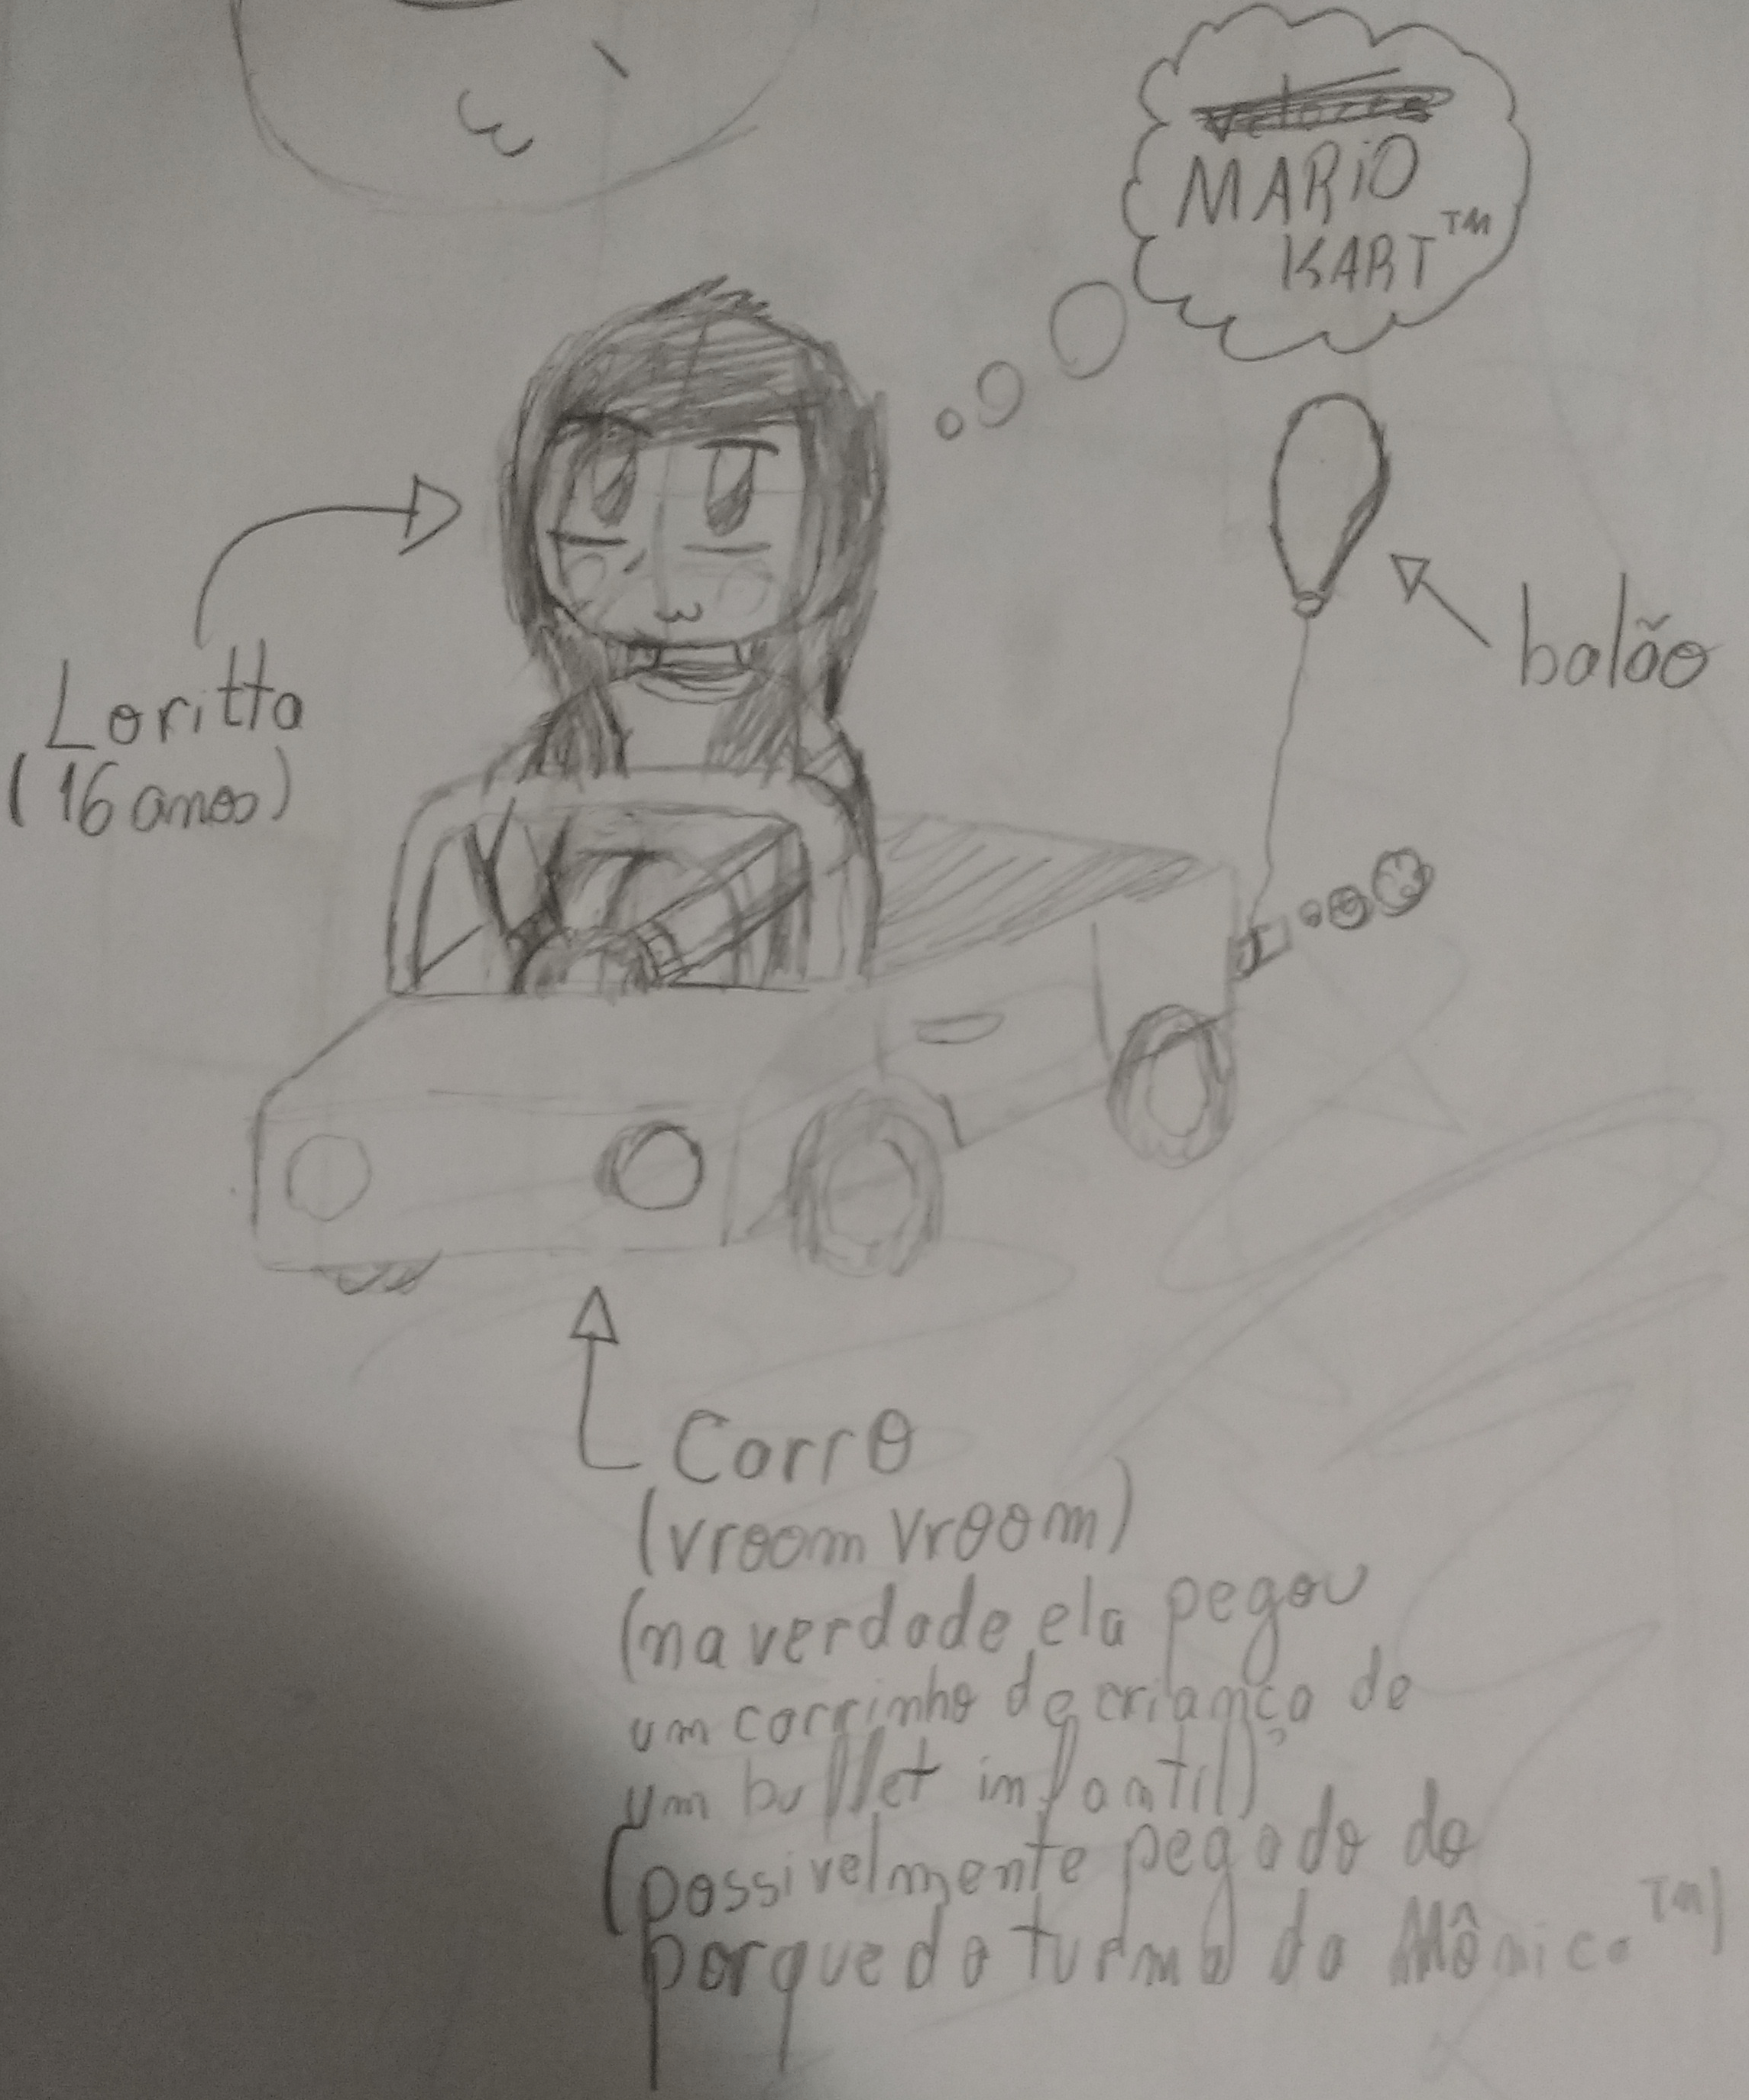 MARiO
KART™
balão
Loritta
(16 anos)
Carro
(vroom vroom)
(na verdade ela pegou
um carrinho de criança de
um buffet infantil)
(possivelmente pegado do
parque da turma da Mônica™)